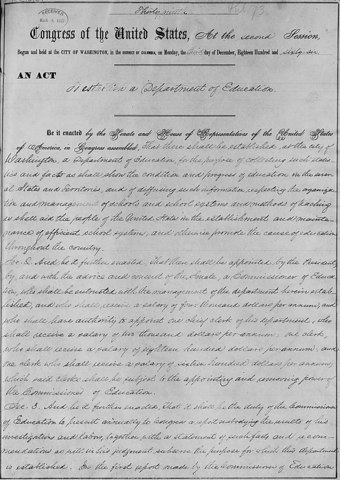 Thirty-ninth
Congress of the United States, At the second Session,
Begun and held at the CITY OF WASHINGTON, in the DISTRICT OF COLUMBIA, on Monday, the third day of December, Eighteen Hundred and sixty-six
AN ACT
To establish a Department of Education.
Be it enacted by the Senate and House of Representatives of the United States
of America, in Congress assembled, That there shall be established, at the city of
Washington, a Department of Education, for the purpose of collecting such statis-
tics and facts as shall show the condition and progress of education in the sever-
al States and Territories, and of diffusing such information respecting the organiza-
tion and management of schools and school systems and methods of teaching
as shall aid the people of the United States in the establishment and mainte-
nance of efficient school systems, and otherwise promote the cause of education
throughout the country.
Sec. 2. And be it further enacted, That there shall be appointed by the President,
by and with the advice and consent of the Senate, a Commissioner of Educa-
tion, who shall be intrusted with the management of the department herein estab-
lished, and who shall receive a salary of four thousand dollars per annum, and
who shall have authority to appoint one chief clerk of his department, who
shall receive a salary of two thousand dollars per annum, one clerk
who shall receive a salary of eighteen hundred dollars per annum, and
one clerk who shall receive a salary of sixteen hundred dollars per annum,
which said clerks shall be subject to the appointing and removing power of
the Commissioner of Education.
Sec. 3. And be it further enacted, That it shall be the duty of the Commissioner
of Education to present annually to Congress a report embodying the results of his
investigations and labors, together with a statement of such facts and recom-
mendations as will in his judgment subserve the purpose for which this department
is established. In the first report made by the Commissioner of Education